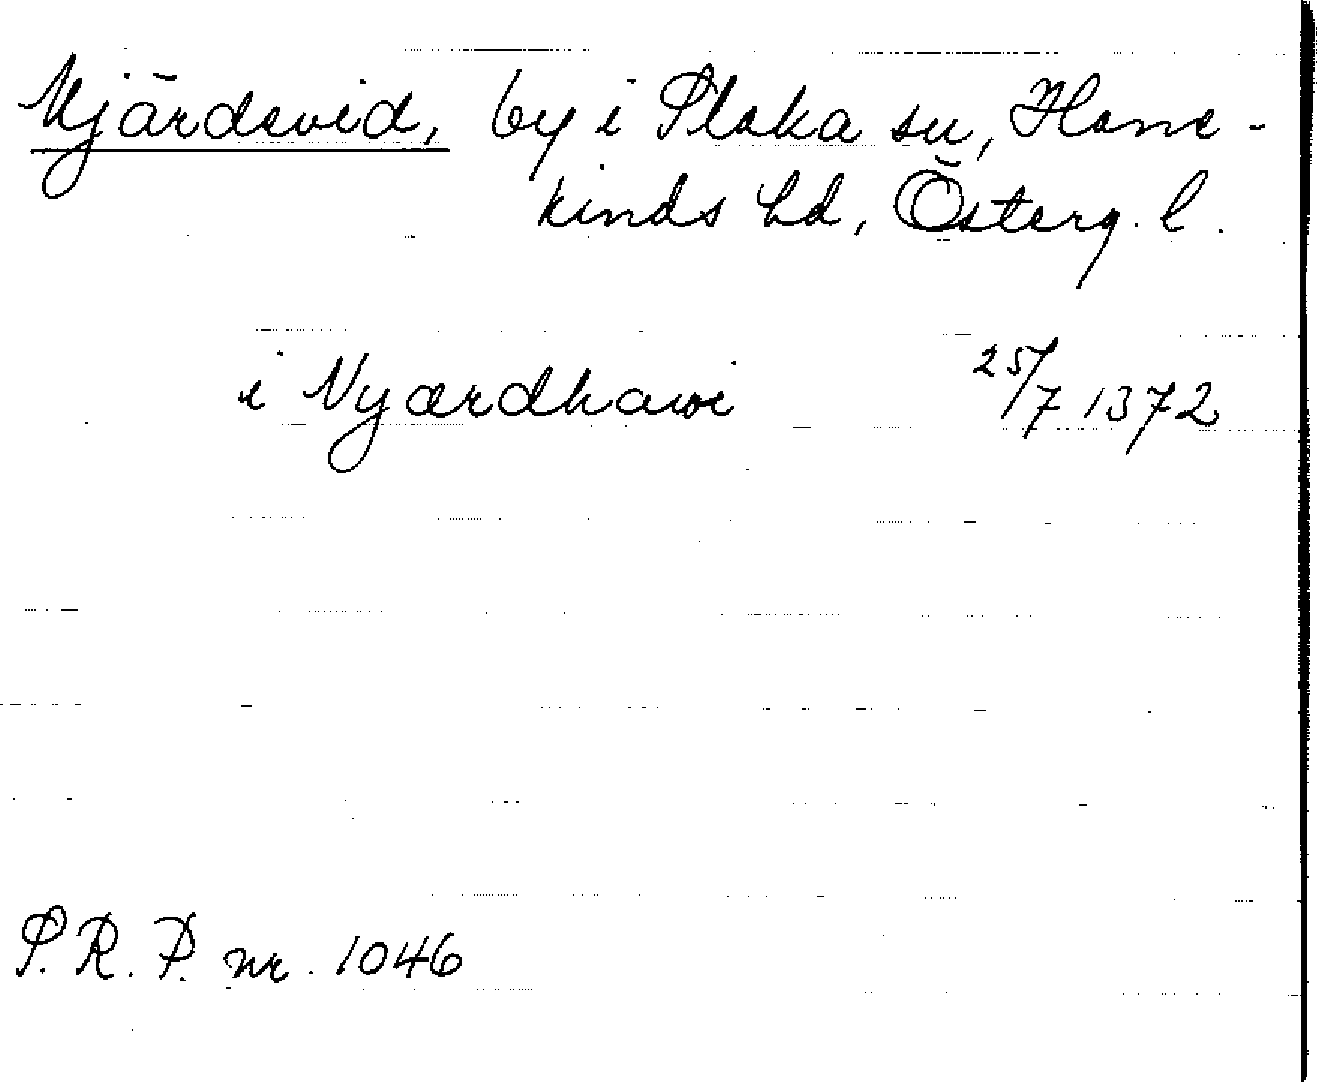 Mjärdevid, by i Slaka sn, Hane-
kinds hd, Österg. l.
i Nyærdhawi 25/7 1372
S.R.P. nr. 1046